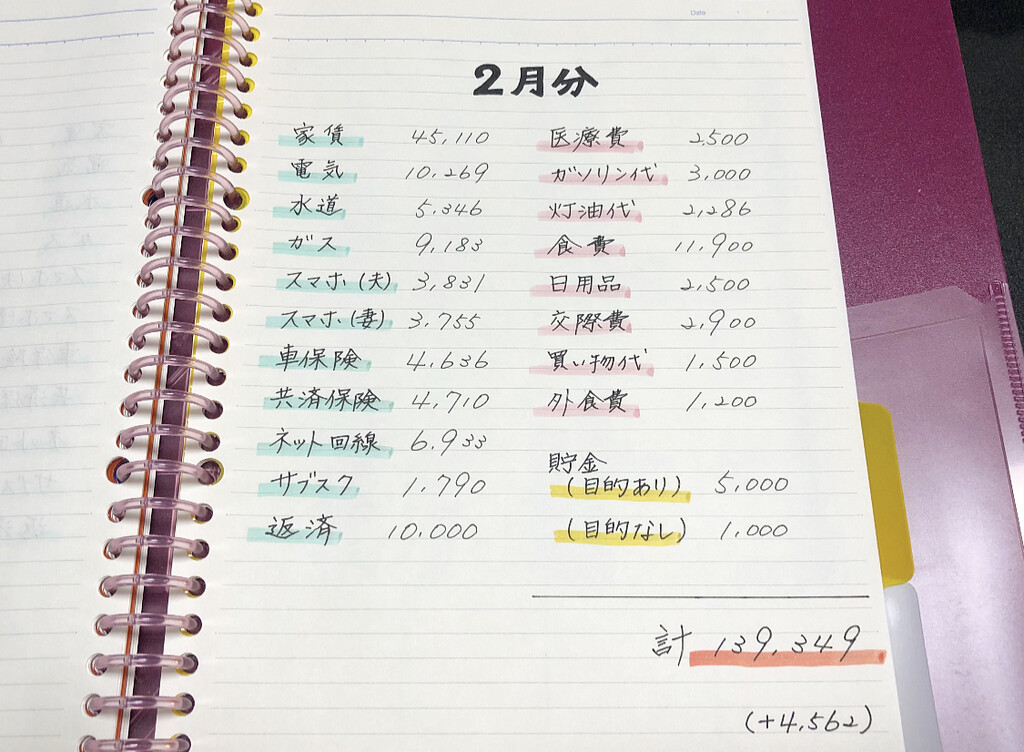 Date
2月分
家賃 45,110
電気 10,269
水道 5,346
ガス 9,183
スマホ(夫) 3,831
スマホ(妻) 3,755
車保険 4,636
共済保険 4,710
ネット回線 6,933
サブスク 1,790
返済 10,000
医療費 2,500
ガソリン代 3,000
灯油代 2,286
食費 11,900
日用品 2,500
交際費 2,900
買い物代 1,500
外食費 1,200
貯金
(目的あり) 5,000
(目的なし) 1,000
計 139,349
(+4,562)